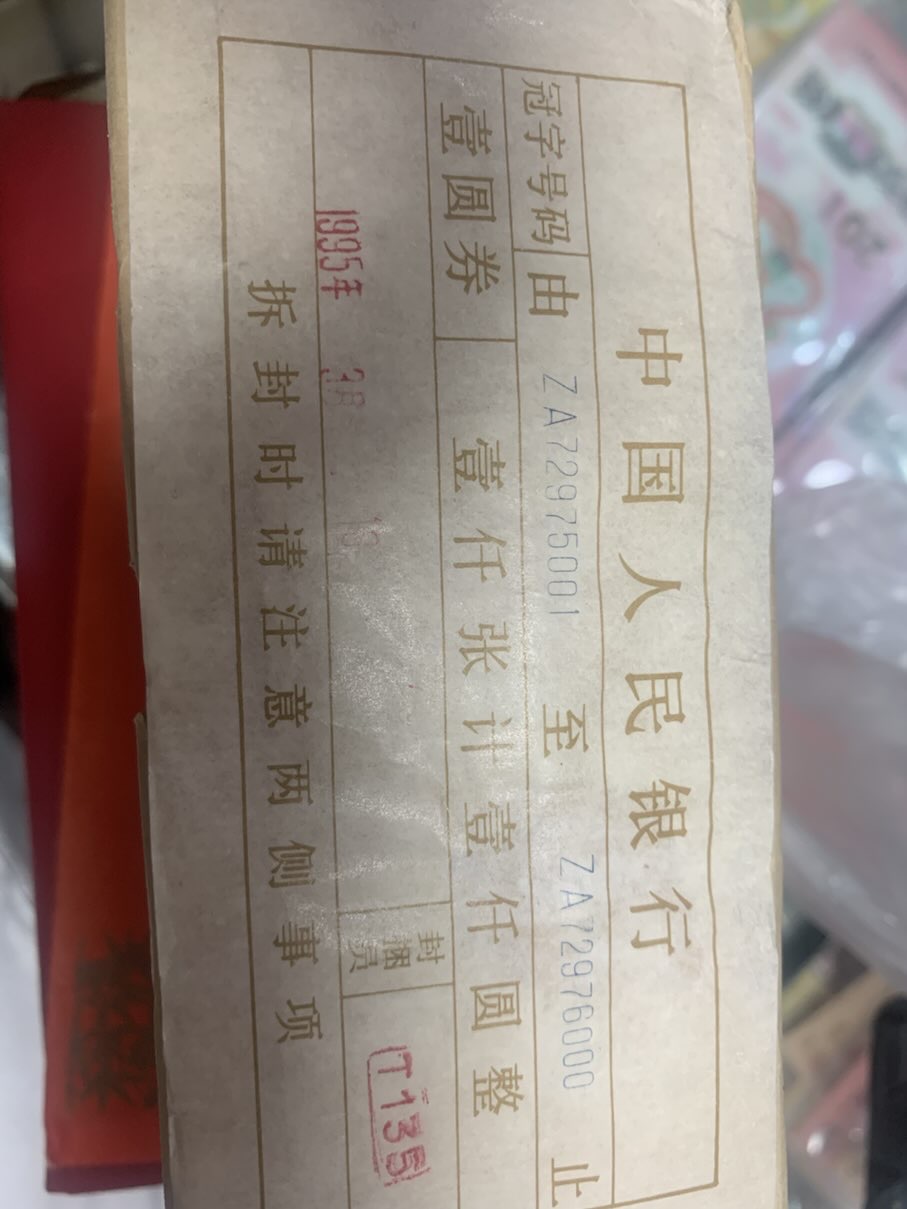 中国人民银行
冠字号码 由 ZA72975001 至 ZA72976000 止
壹圆券 壹仟张计壹仟圆整
1995年 封捆员 T135
拆封时请注意两侧事项